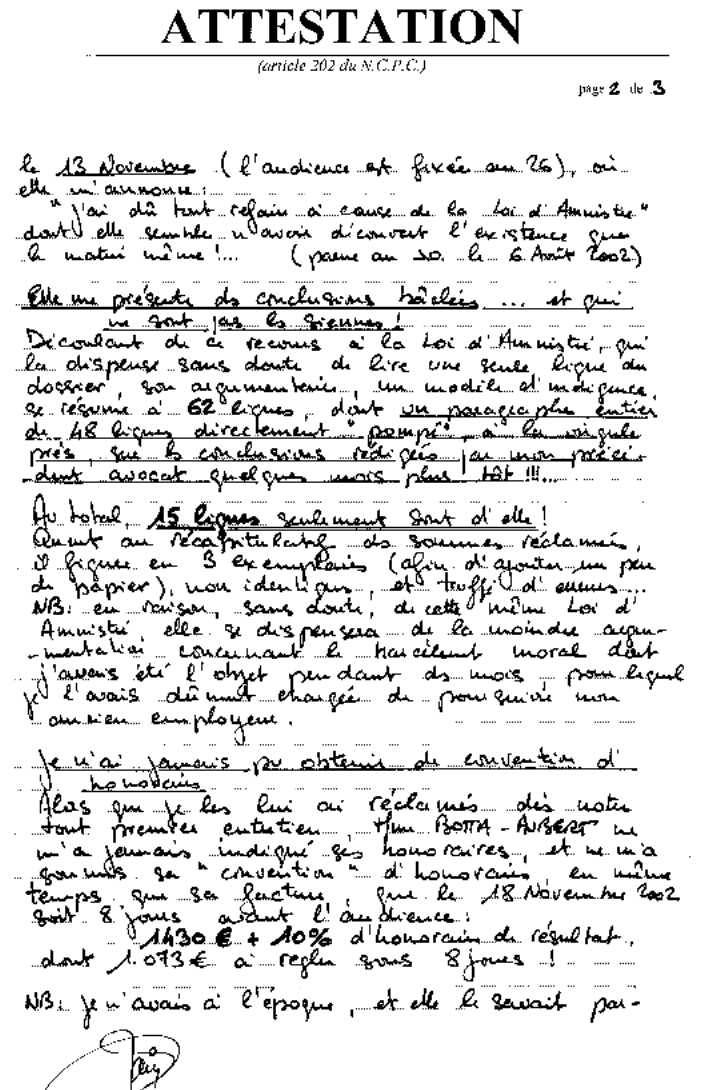 ATTESTATION
(article 202 du N.C.P.C.)
page 2 de 3
le 13 Novembre (l'audience est fixée au 26), où
elle m'annonce :
"J'ai dû tout refaire à cause de la Loi d'Amnistie"
dont elle semble n'avoir découvert l'existence que
le matin même !... (parue au JO. le 6 Août 2002)
Elle me présente des conclusions bâclées ... et qui
ne sont pas les siennes !
Découlant de ce recours à la Loi d'Amnistie, qui
la dispense sans doute de lire une seule ligne du
dossier, son argumentaire, un modèle d'indigence,
se résume à 62 lignes, dont un paragraphe entier
de 48 lignes directement "pompé", à la virgule
près, sur les conclusions rédigées par mon précé-
-dent avocat quelques mois plus tôt !!!...
Au total, 15 lignes seulement sont d'elle !
Quant au récapitulatif des sommes réclamées,
il figure en 3 exemplaires (afin d'ajouter un peu
de papier), non identiques, et truffé d'erreurs...
NB: en raison, sans doute, de cette même Loi d'
Amnistie, elle se dispensera de la moindre argu-
-mentation concernant le harcèlement moral dont
j'avais été l'objet pendant des mois, pour lequel
je l'avais dûment chargée de poursuivre mon
ancien employeur.
Je n'ai jamais pu obtenir de convention d'
honoraires
Alors que je les lui ai réclamés dès notre
tout premier entretien, Mme BOTTA-AUBERT ne
m'a jamais indiqué ses honoraires, et ne m'a
soumis sa "convention" d'honoraires, en même
temps que sa facture, que le 18 Novembre 2002
soit 8 jours avant l'audience :
1430 € + 10% d'honoraires de résultat,
dont 1.073 € à regler sous 8 jours !
NB: je n'avais à l'époque, et elle le savait par-